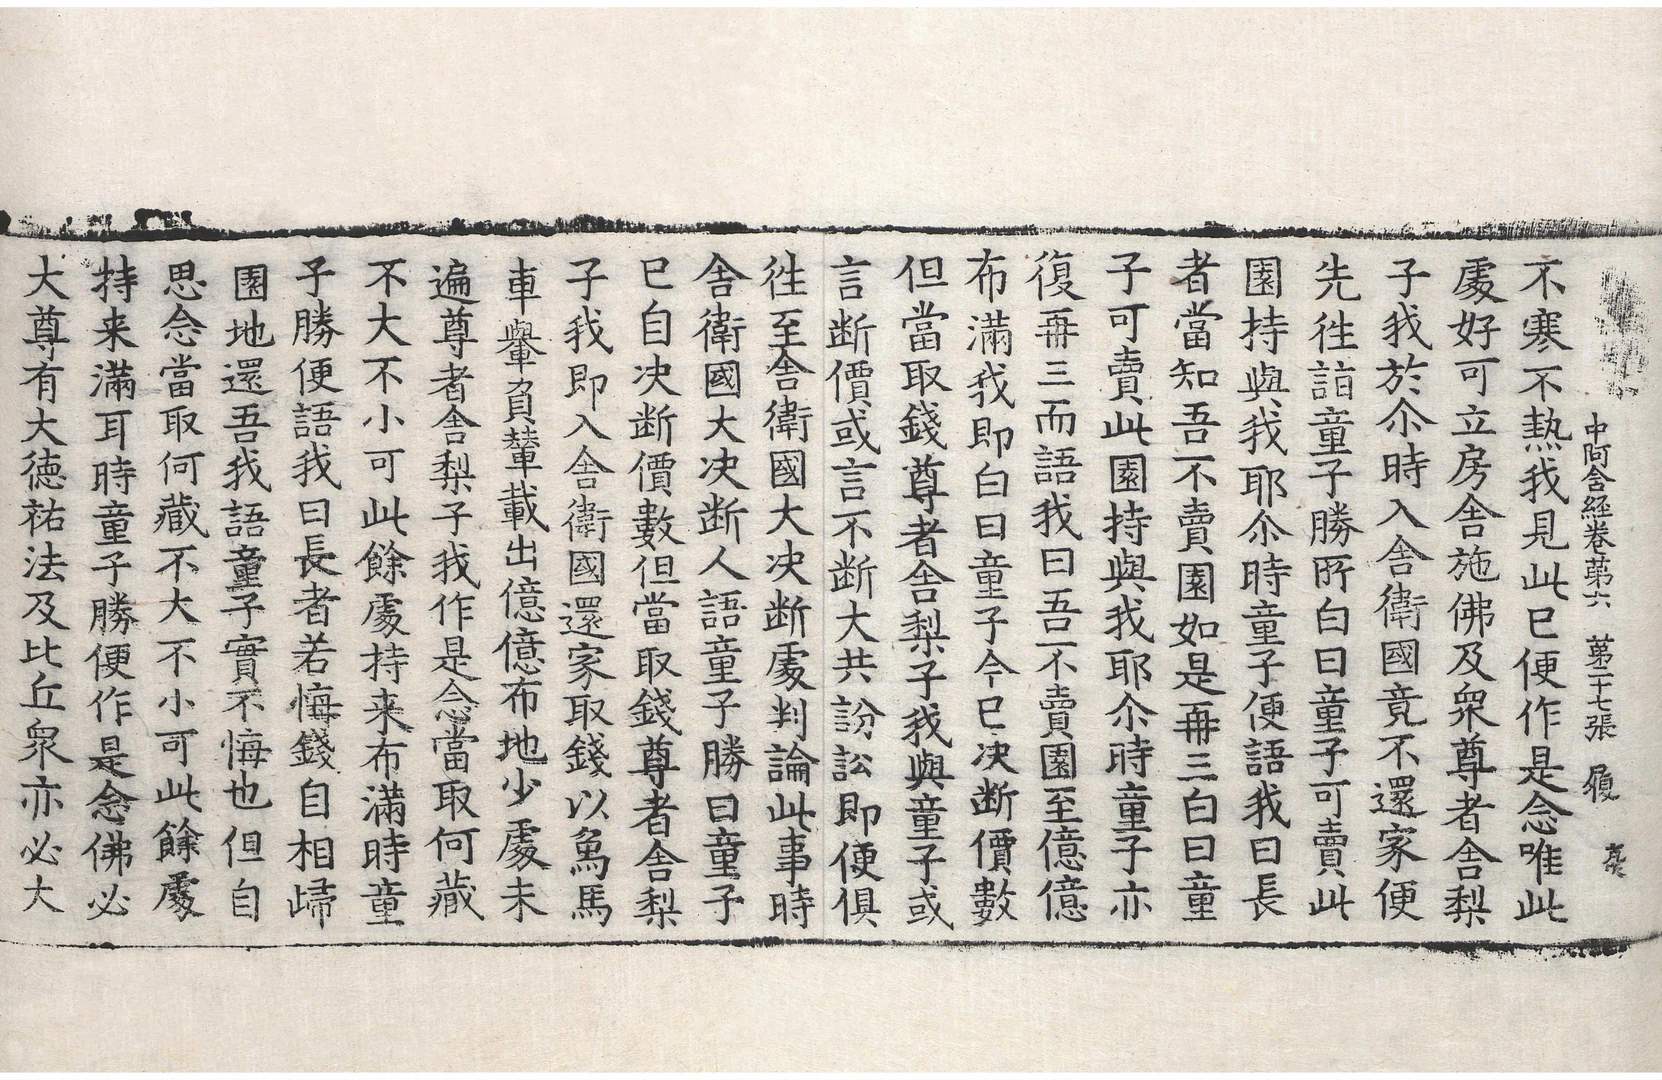 中阿含經卷第六 第二十七張 履
不寒不熱我見此已便作是念唯此
處好可立房舍施佛及衆尊者舍梨
子我於尒時入舍衛國竟不還家便
先往詣童子勝所白曰童子可賣此
園持與我耶尒時童子便語我曰長
者當知吾不賣園如是再三白曰童
子可賣此園持與我耶尒時童子亦
復再三而語我曰吾不賣園至億億
布滿我即白曰童子今已决断價數
但當取錢尊者舍梨子我與童子或
言断價或言不断大共訟即便俱
往至舍衛國大决断處判論此事時
舍衛國大决断人語童子勝曰童子
已自决断價數但當取錢尊者舍梨
子我即入舍衛國還家取錢以象馬
車轝負輦載出億億布地少處未
遍尊者舍梨子我作是念當取何藏
不大不小可此餘處持来布滿時童
子勝便語我曰長者若悔錢自相歸
園地還吾我語童子實不悔也但自
思念當取何藏不大不小可此餘處
持来滿耳時童子勝便作是念佛必
大尊有大德祐法及比丘衆亦必大